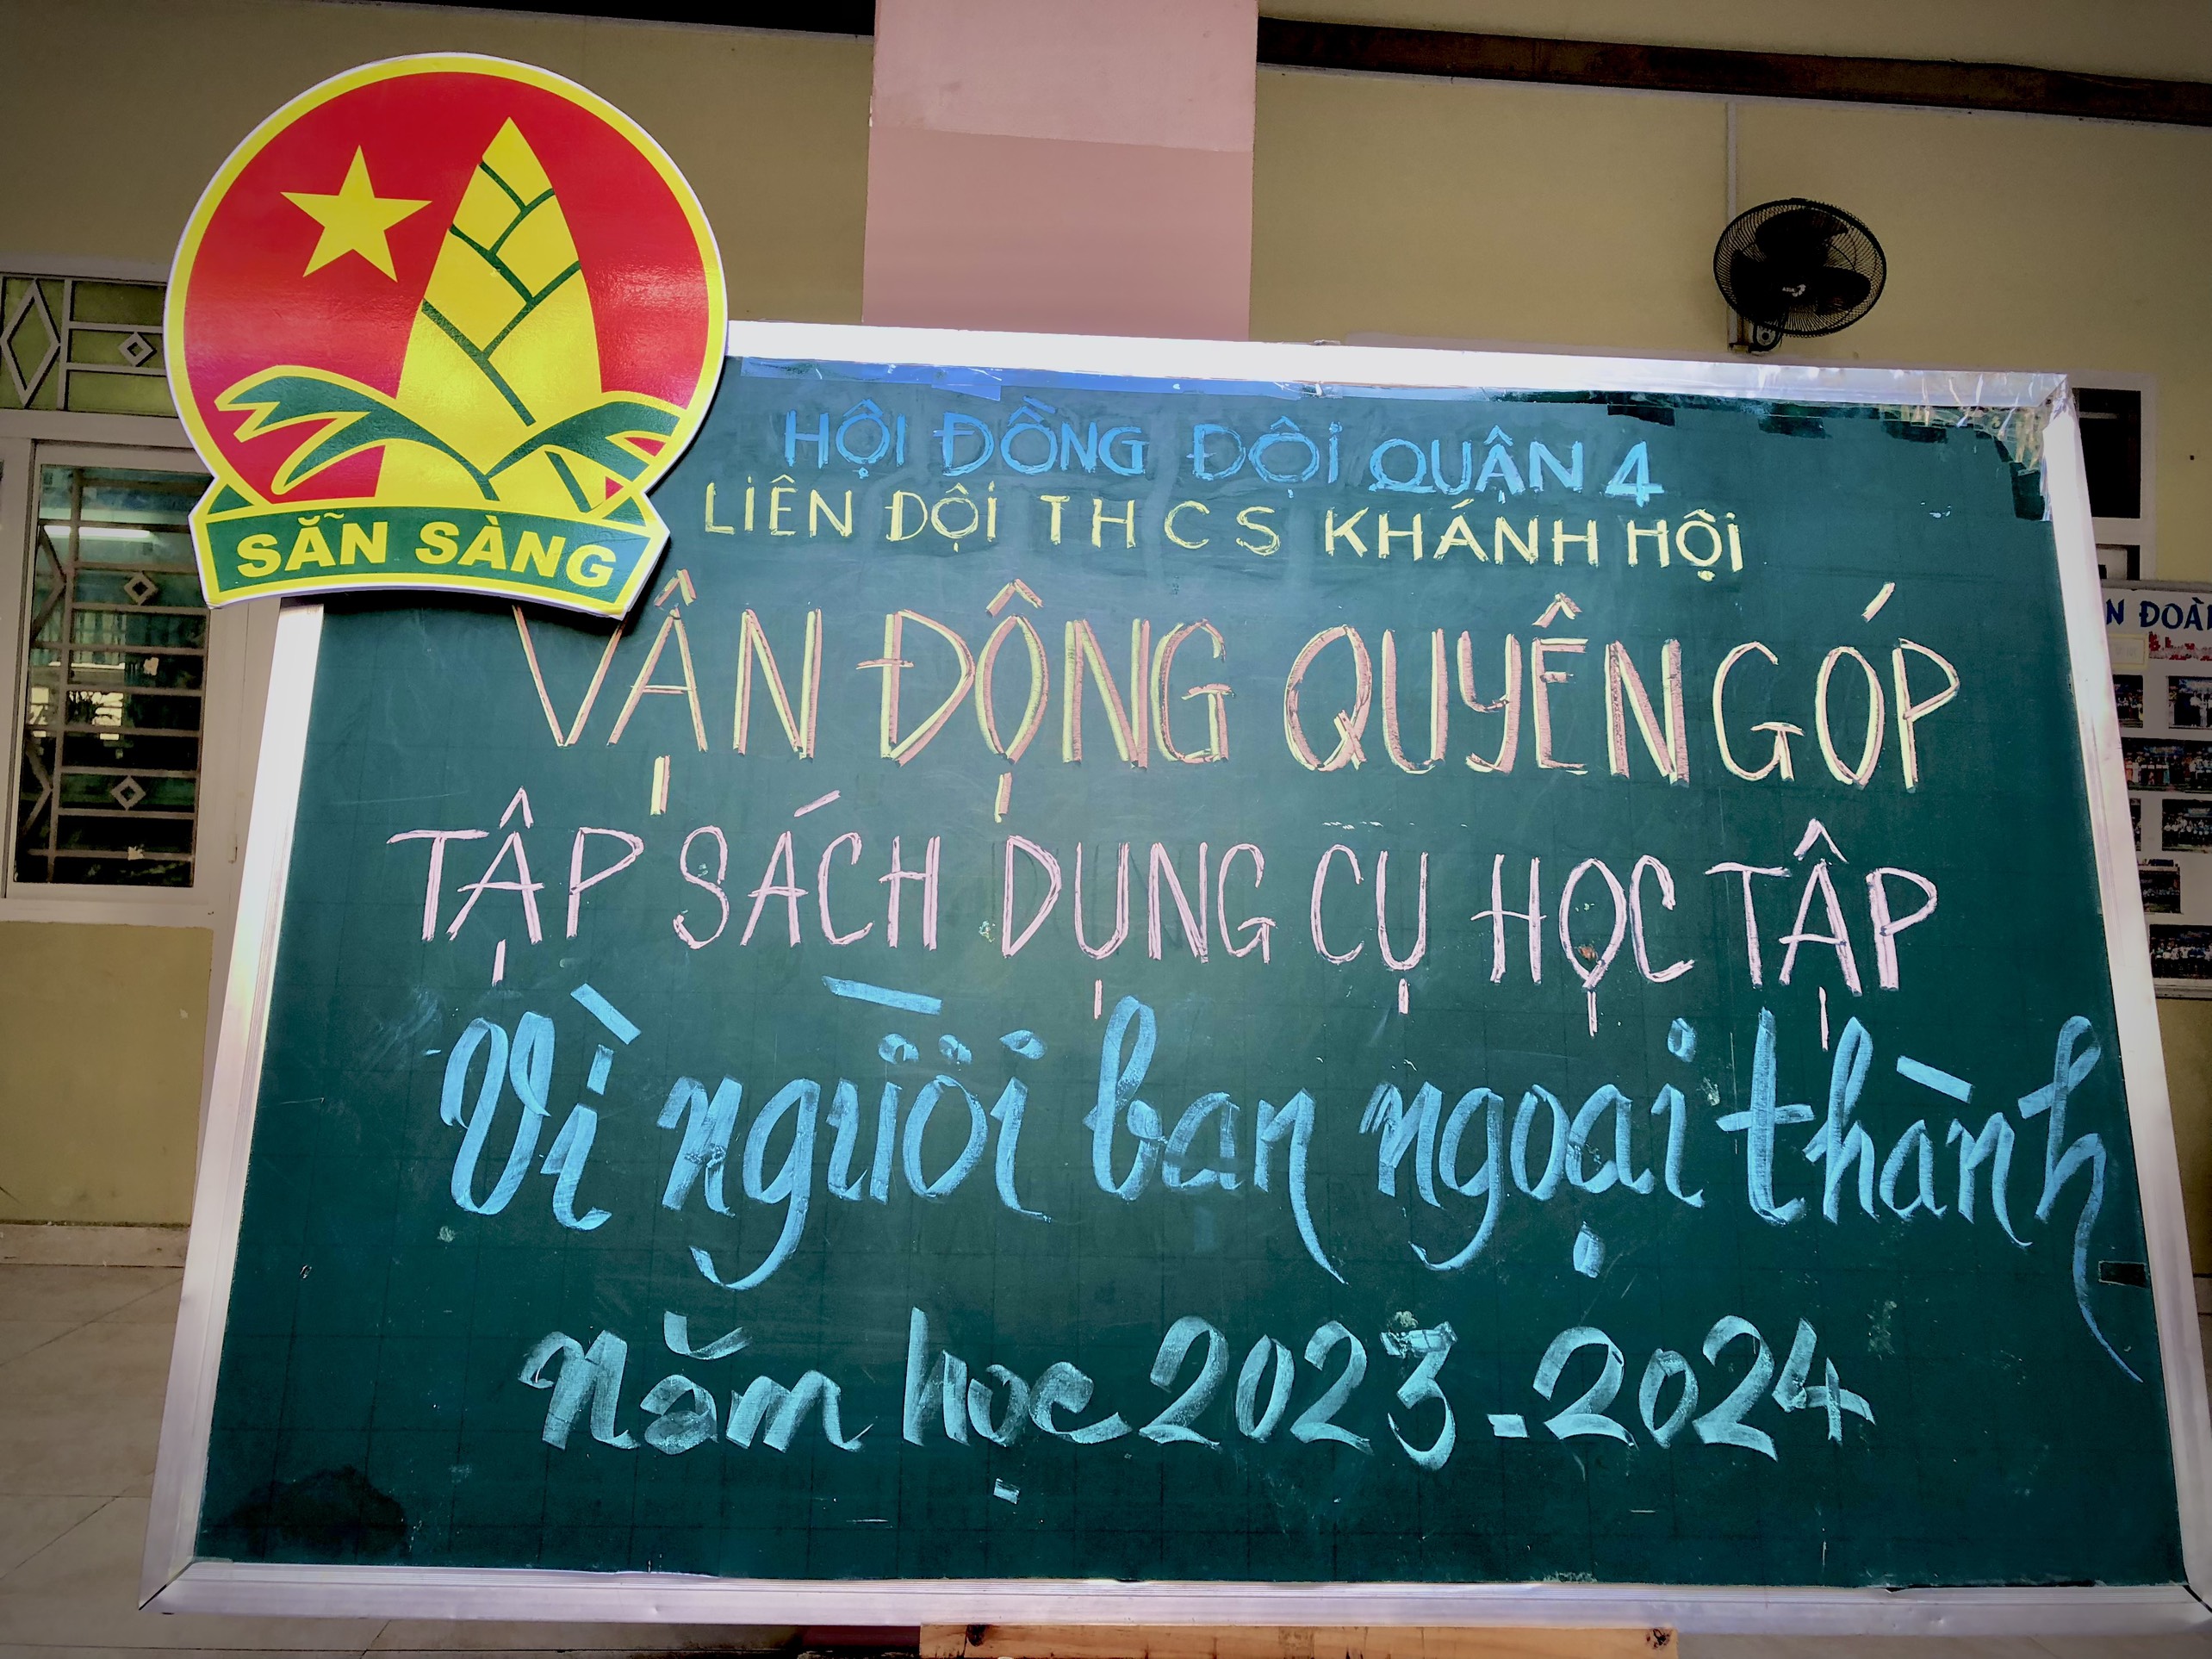 SẴN SÀNG
HỘI ĐỒNG ĐỘI QUẬN 4
LIÊN ĐỘI THCS KHÁNH HỘI
VẬN ĐỘNG QUYÊN GÓP
TẬP SÁCH DỤNG CỤ HỌC TẬP
Vì người ban ngoại thành
năm học 2023-2024
N ĐOÀN